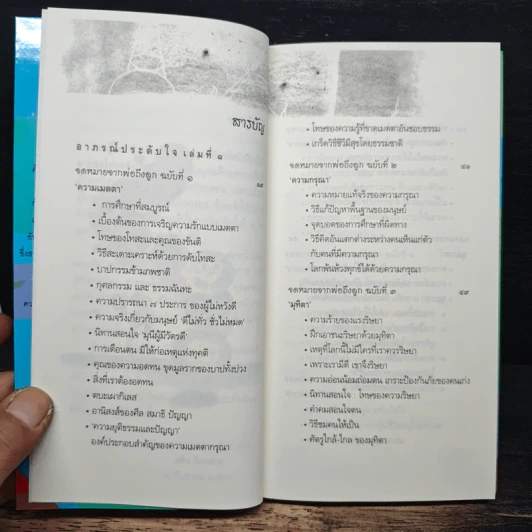 สารบัญ
อาภรณ์ประดับใจ เล่มที่ ๑
จดหมายจากพ่อถึงลูก ฉบับที่ ๑
'ความเมตตา'
• การศึกษาที่สมบูรณ์
• เบื้องต้นของการเจริญความรักแบบเมตตา
• โทษของโทสะและคุณของขันติ
• วิธีสะเดาะเคราะห์ด้วยการดับโทสะ
• บาปกรรมข้ามภพชาติ
• กุศลกรรม และ ธรรมฉันทะ
• ความปรารถนา ๗ ประการ ของผู้ไม่หวังดี
• ความจริงเกี่ยวกับมนุษย์ 'ดีไม่ทั่ว ชั่วไม่หมด'
• นิทานสอนใจ 'มุนีผู้มีวัตรดี'
• การเตือนตน มิให้ก่อเหตุแห่งทุคติ
• คุณของความอดทน ขุดมูลรากของบาปทั้งปวง
• สิ่งที่เราต้องอดทน
• ตบะเผากิเลส
• อานิสงส์ของศีล สมาธิ ปัญญา
• 'ความยุติธรรมและปัญญา'
องค์ประกอบสำคัญของความเมตตากรุณา
• โทษของความรู้ที่ขาดเมตตาอันชอบธรรม
• เกร็ดวิธีชีวิมีสุขโดยธรรมชาติ
จดหมายจากพ่อถึงลูก ฉบับที่ ๒
'ความกรุณา'
• ความหมายแท้จริงของความกรุณา
• วิธีแก้ปัญหาพื้นฐานของมนุษย์
• จุดบอดของการศึกษาที่ผิดทาง
• วิธีคิดอันแตกต่างระหว่างคนเห็นแก่ตัว
กับคนที่มีความกรุณา
• โลกพ้นห้วงทุกข์ได้ด้วยความกรุณา
จดหมายจากพ่อถึงลูก ฉบับที่ ๓
'มุทิตา'
• ความร้ายของแรงริษยา
• ฝึกเอาชนะริษยาด้วยมุทิตา
• เหตุที่โลกนี้ไม่มีใครที่เราควรริษยา
• เพราะเรามีดี เขาจึงริษยา
• ความอ่อนน้อมถ่อมตน เกราะป้องกันภัยของคนเก่ง
• นิทานสอนใจ : โทษของความริษยา
• คำคมสอนใจตน
• วิธีชมคนให้เป็น
• ศัตรูใกล้-ไกล ของมุทิตา